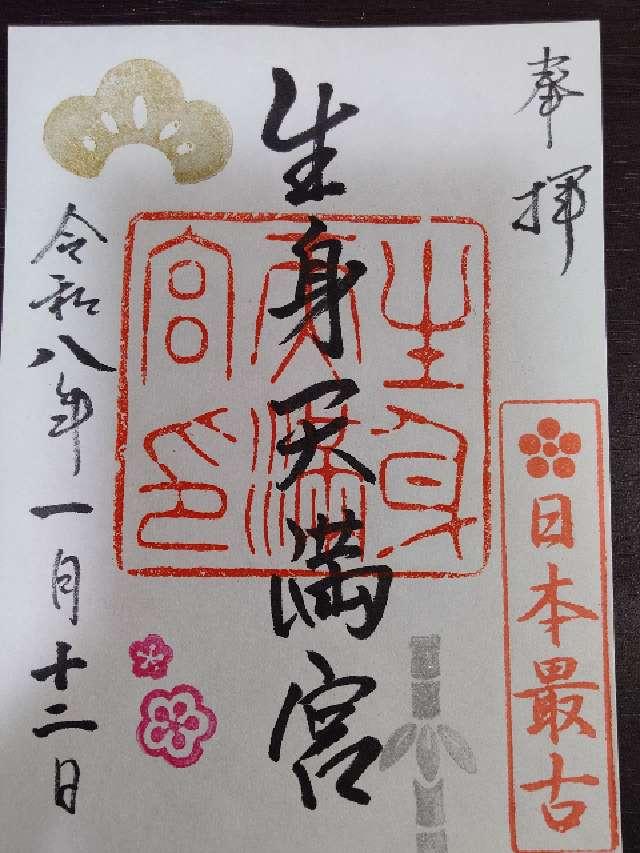 奉拝
日本最古
生身天満宮
生身天満宮印
令和八年一月十二日